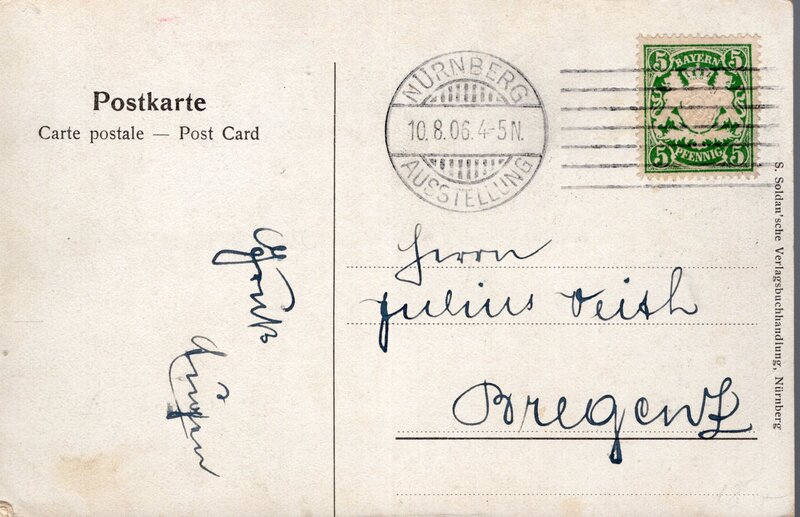 Postkarte
Carte postale — Post Card
NÜRNBERG
10.8.06.4-5N.
AUSSTELLUNG
5 BAYERN 5
5 PFENNIG 5
Gruß
Herrn
Julius Veith
Bregenz
S. Soldan'sche Verlagsbuchhandlung, Nürnberg